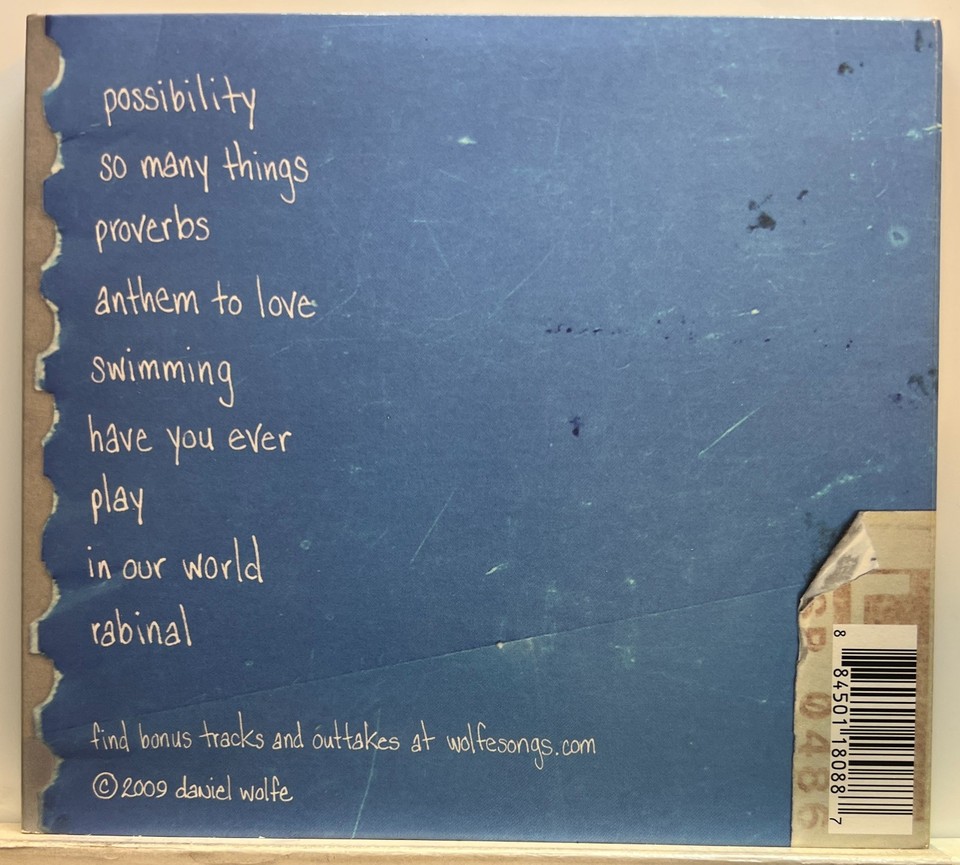 possibility
so many things
proverbs
anthem to love
swimming
have you ever
play
in our world
rabinal
find bonus tracks and outtakes at wolfesongs.com
©2009 daniel wolfe
8 84501 18088 7
0486